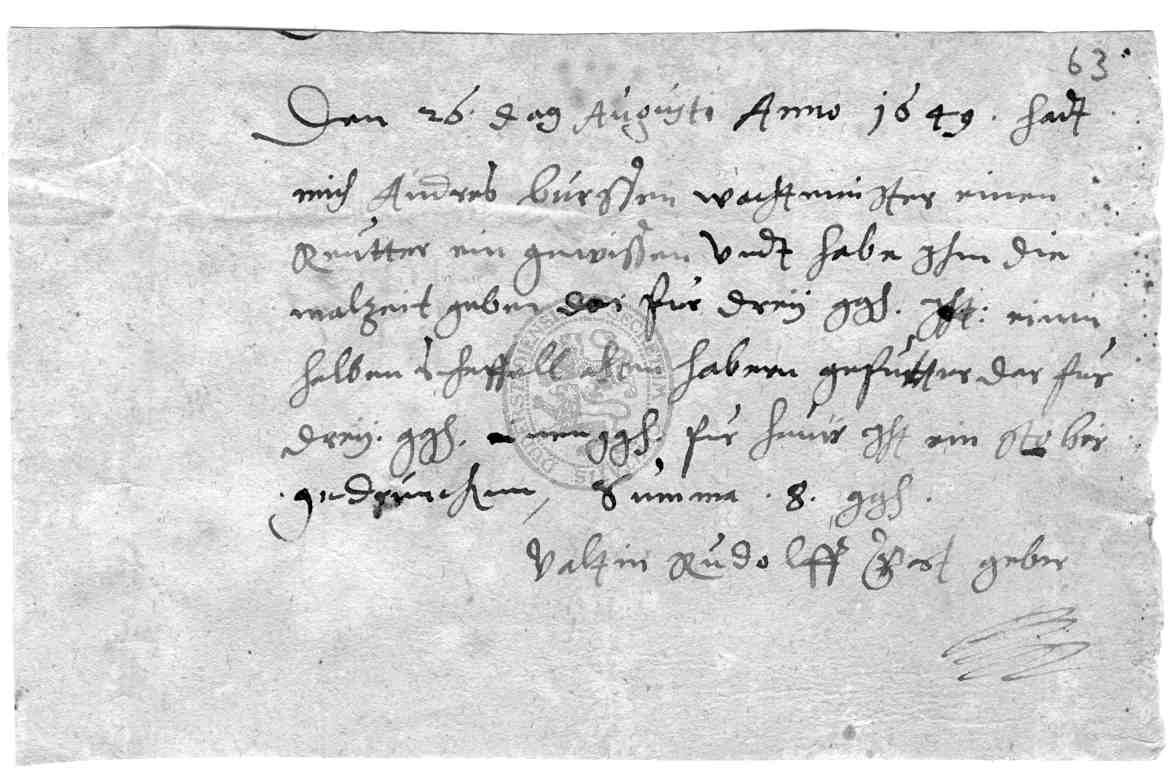 63
Den 26. dag Augusti Anno 1649. hadt
mich Andres bürssen wachtmeister einen
Reutter ein gewissen Vndt habe Ihm die
malzeit geben dar für dreÿ ggl. Ist: einen
halben scheffell alten habern gefütter dar für
dreÿ. ggl. ggl. für heüw Ist ein bir
gedruncken, Summa. 8. ggl.
Valtin Rudolff Gast geber